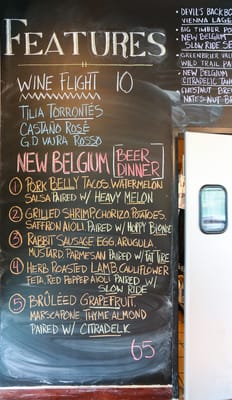 FEATURES
WINE FLIGHT 10
TILIA TORRONTÉS
CASTAÑO ROSÉ
G.D VAJRA ROSSO
NEW BELGIUM [BEER DINNER]
1 PORK BELLY TACOS WATERMELON
SALSA PAIRED W/ HEAVY MELON
2 GRILLED SHRIMP, CHORIZO POTATOES,
SAFFRON AIOLI PAIRED W/ HOPPY BLONDE
3 RABBIT SAUSAGE EGG, ARUGULA,
MUSTARD PARMESAN PAIRED W/ FAT TIRE
4 HERB ROASTED LAMB, CAULIFLOWER
FETA, RED PEPPER AIOLI PAIRED W/
SLOW RIDE
5 BRÛLÉED GRAPEFRUIT,
MARSCAPONE THYME ALMOND
PAIRED W/ CITRADELIC
65
DEVIL'S BACKBO
VIENNA LAGER
BIG TIMBER PO
NEW BELGIUM
SLOW RIDE SE
GREENBRIER VAL
WILD TRAIL PA
NEW BELGIUM
CITRADELIC TAN
CHESTNUT BREW
NUT BR